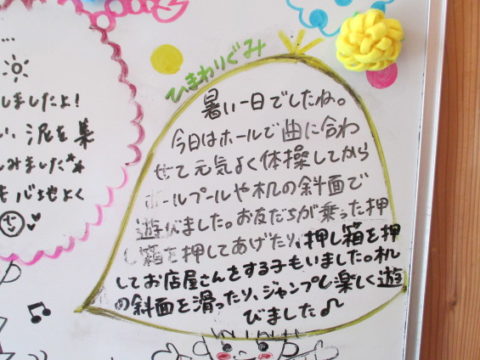 しましたよ!
い、泥を集
しみました
ひまわりぐみ
暑い一日でしたね。
今日はホールで曲に合わ
せて元気よく体操してから
ボールプールや机の斜面で
遊びました。お友だちが乗った押
し箱を押してあげたり、押し箱を押
してお店屋さんをする子もいました。机
の斜面を滑ったり、ジャンプし楽しく遊
びました♪